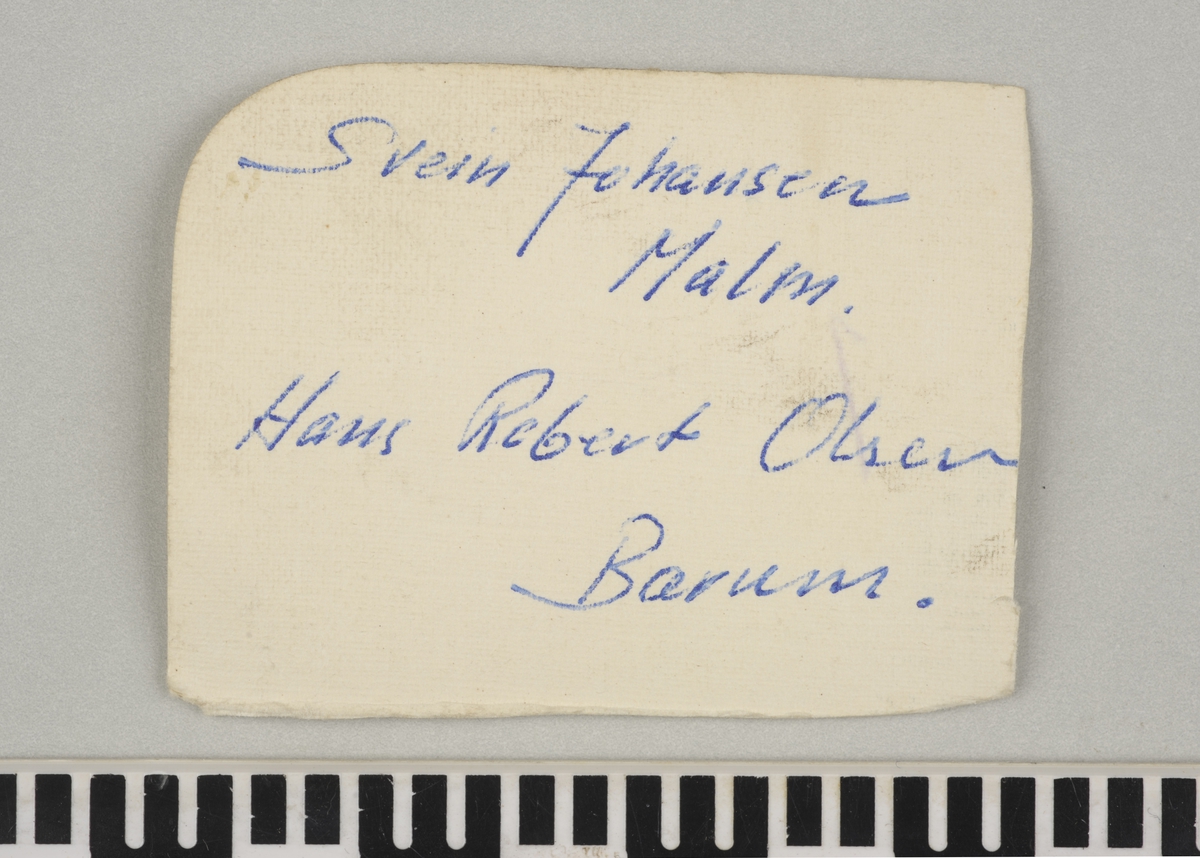 Svein Johansen
Malm.
Hans Robert Olsen
Bærum.